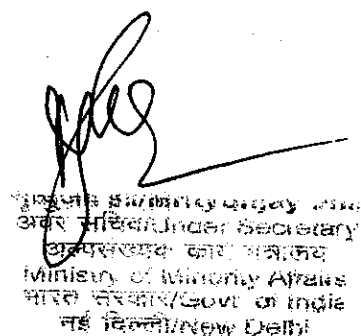 अवर सचिव/Under Secretary
अल्पसंख्यक कार्य मंत्रालय
Ministry of Minority Affairs
भारत सरकार/Govt. of India
नई दिल्ली/New Delhi